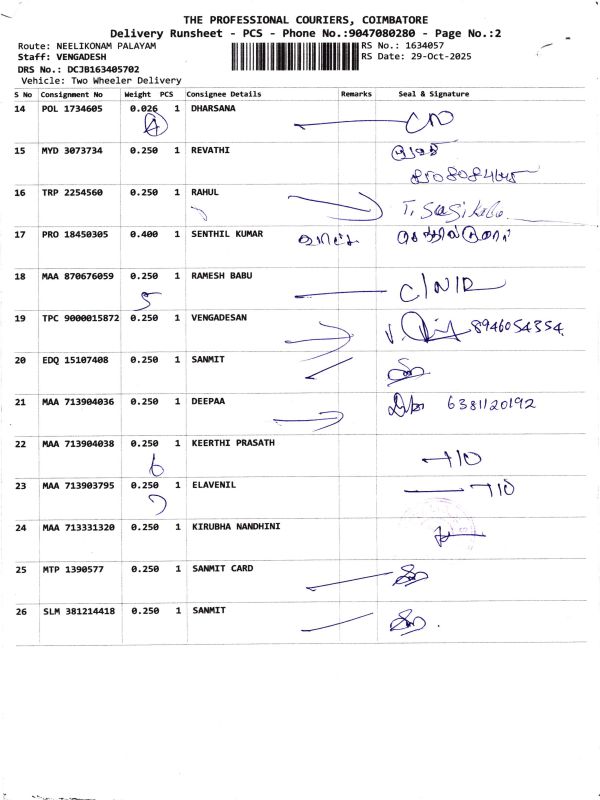 THE PROFESSIONAL COURIERS, COIMBATORE
Delivery Runsheet - PCS - Phone No.:9047080280 - Page No.:2
Route: NEELIKONAM PALAYAM
RS No.: 1634057
Staff: VENGADESH
RS Date: 29-Oct-2025
DRS No.: DCJB163405702
Vehicle: Two Wheeler Delivery
S No Consignment No Weight PCS Consignee Details Remarks Seal & Signature
14 POL 1734605 0.026 1 DHARSANA
4
15 MYD 3073734 0.250 1 REVATHI
16 TRP 2254560 0.250 1 RAHUL
T. Sasikala.
17 PRO 18450305 0.400 1 SENTHIL KUMAR
18 MAA 870676059 0.250 1 RAMESH BABU C/N/R
5
19 TPC 9000015872 0.250 1 VENGADESAN 8946054354
20 EDQ 15107408 0.250 1 SANMIT
21 MAA 713904036 0.250 1 DEEPAA 6381120192
22 MAA 713904038 0.250 1 KEERTHI PRASATH
6
23 MAA 713903795 0.250 1 ELAVENIL
7
24 MAA 713331320 0.250 1 KIRUBHA NANDHINI
25 MTP 1390577 0.250 1 SANMIT CARD
26 SLM 381214418 0.250 1 SANMIT